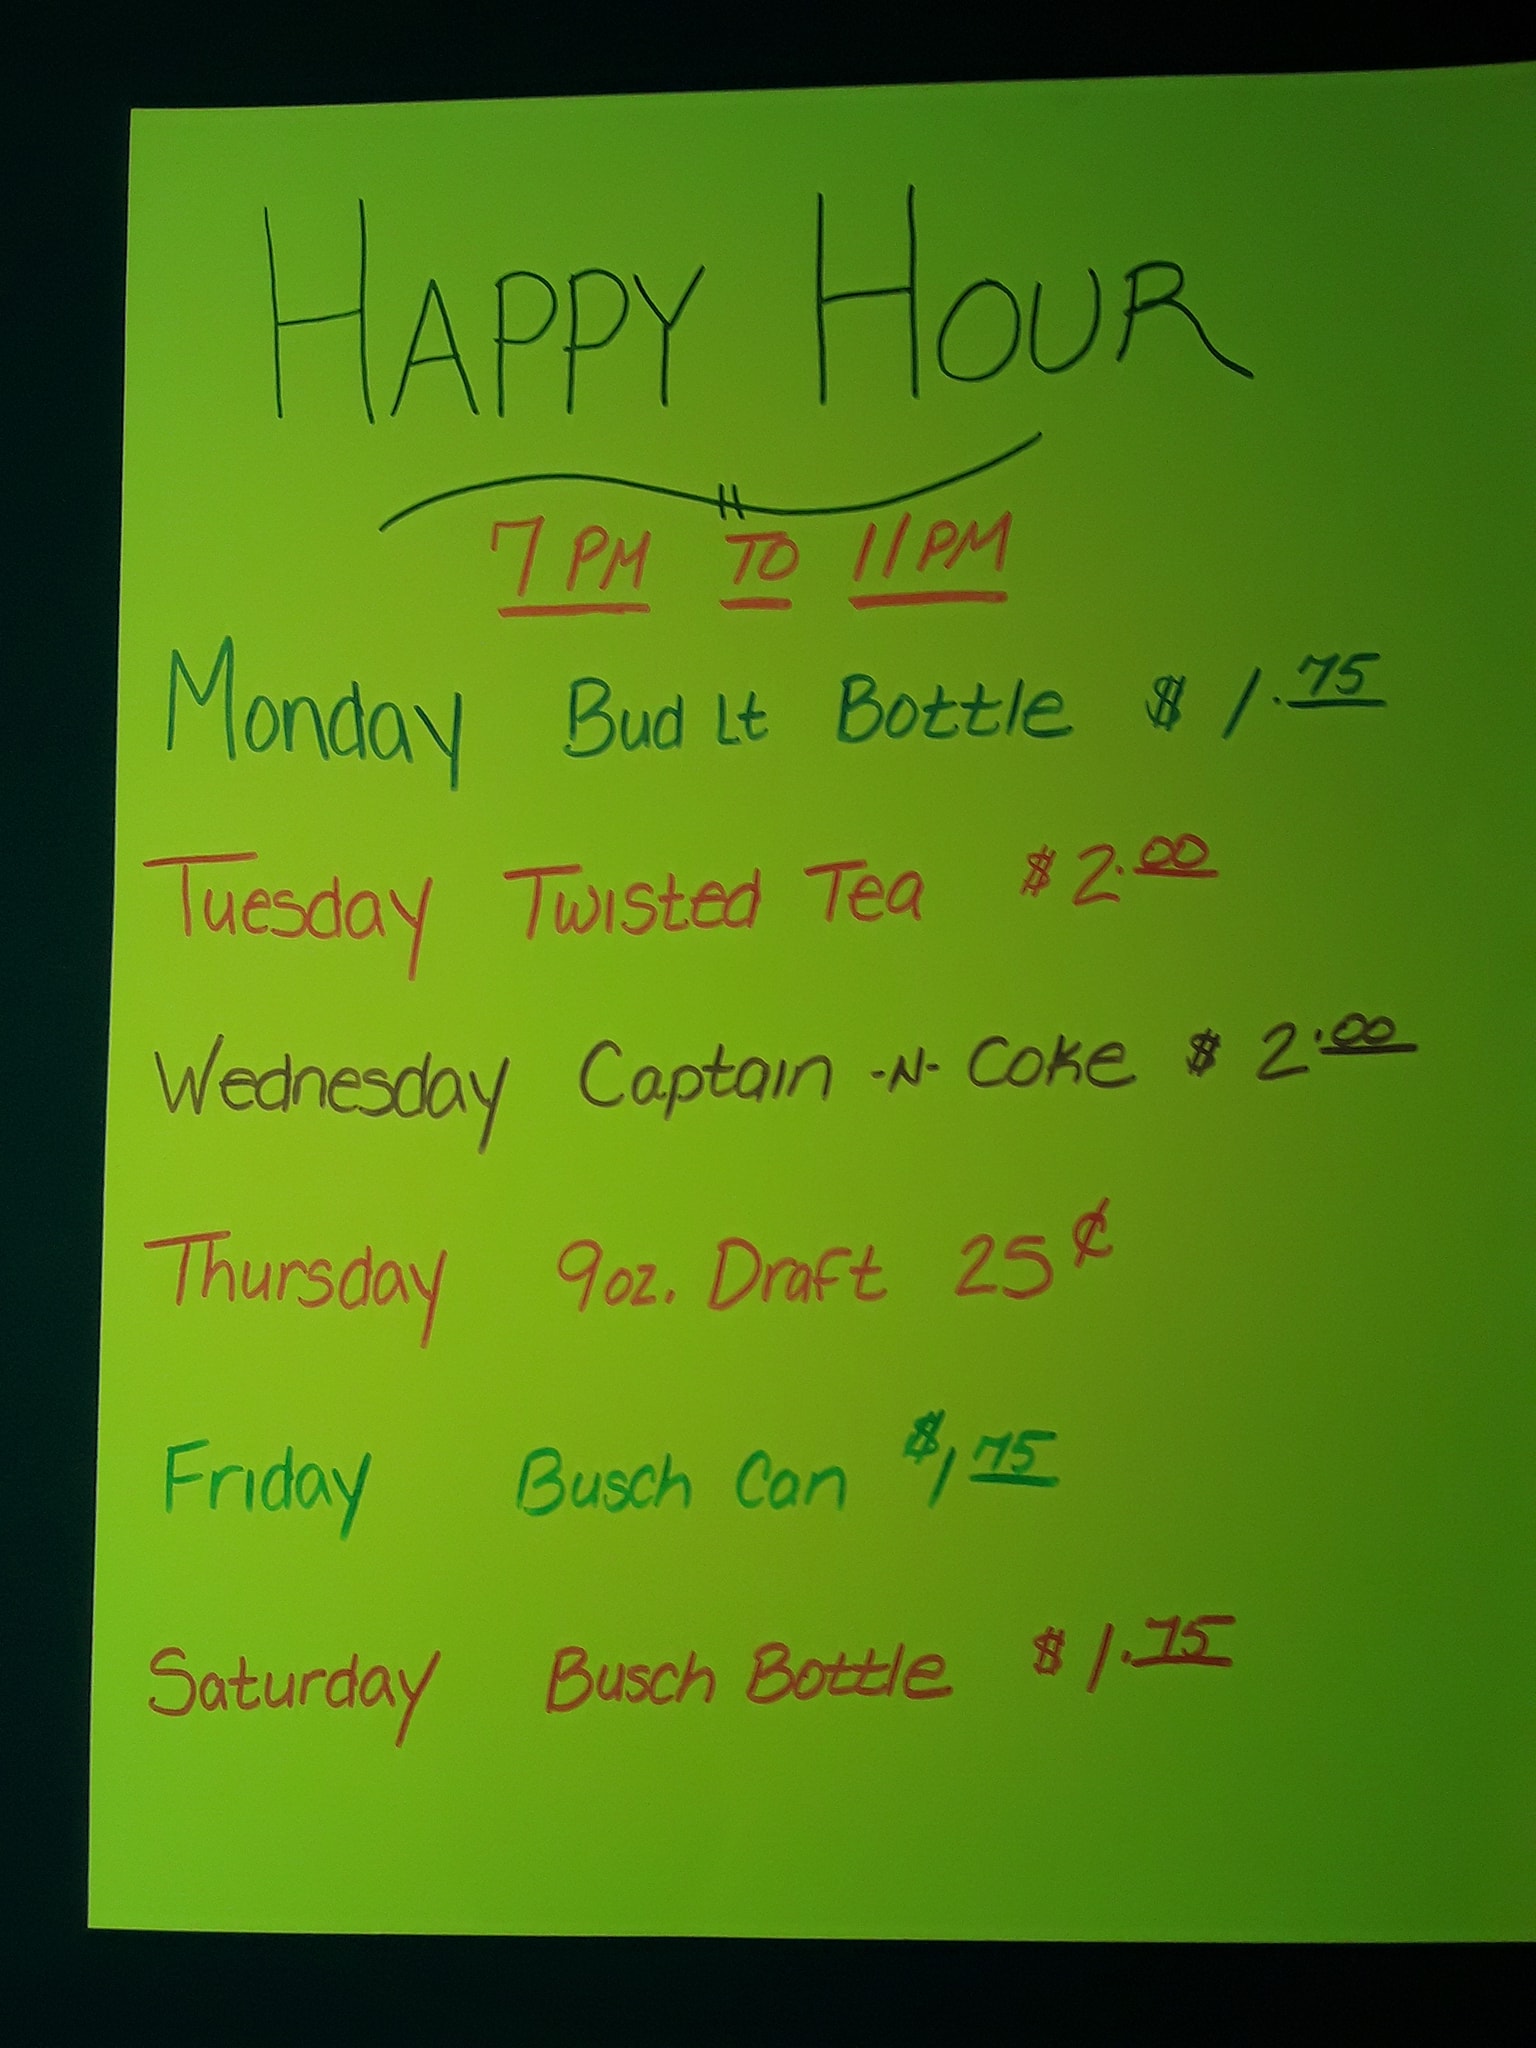 HAPPY HOUR
7 PM TO 11 PM
Monday Bud Lt Bottle $1.75
Tuesday Twisted Tea $2.00
Wednesday Captain -N- Coke $2.00
Thursday 9oz. Draft 25¢
Friday Busch Can $1.75
Saturday Busch Bottle $1.75